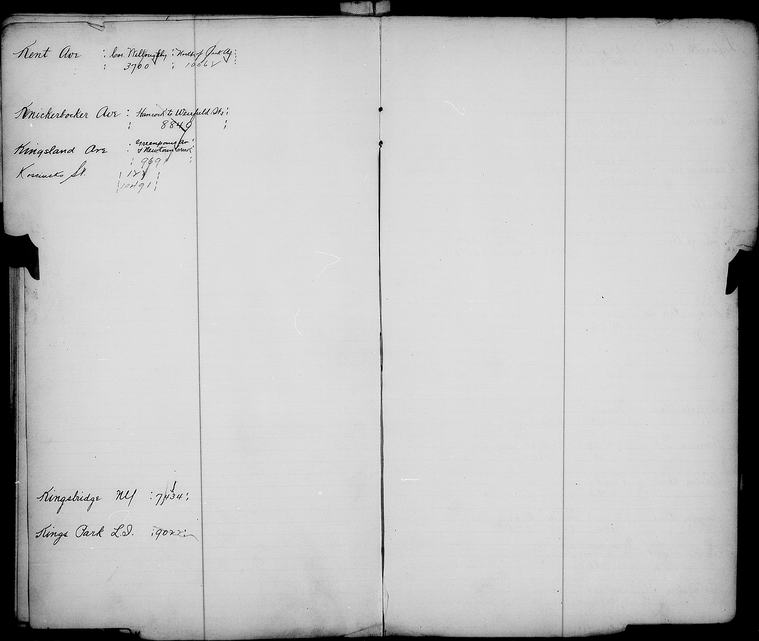 Kent Ave : Cor. Willoughby : North of Park Av :
: 3760 : 10062
Knickerbocker Ave : Hancock to Weirfield Sts :
: 8840 :
Kingsland Ave : Greenpoint Av
& Newtown Creek
: 969 :
Kosciusko St.
10491
Kingsbridge NY : 7434 :
Kings Park L.I. : 9022 :